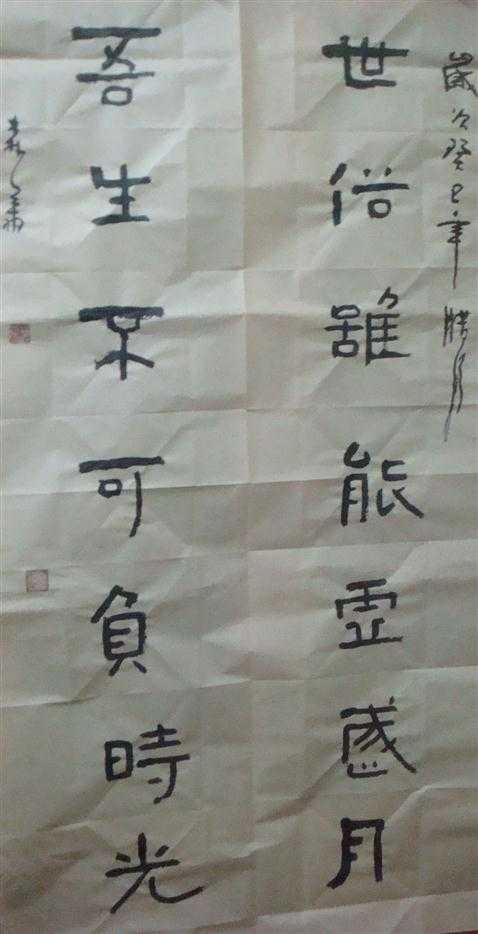 歲次癸巳年臘月
世俗雖能虛歲月
吾生不可負時光